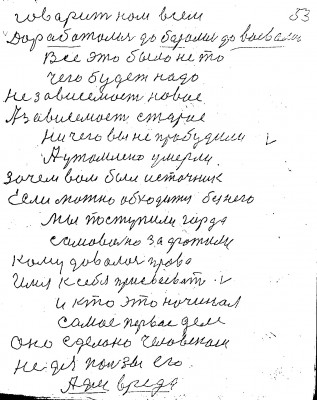 говорит ном всем
53
Доработолися до базами до воевалоя
Все это было не то
чего будет надо
Не зависемост новое
А зависемост старое
Ничего вы не пробудили
А утомлено умерли
Зочем вом был источник
Если можно обходить бу него
мы поступили гордо
самовольно
кому довалоя право
Имя к себя присвоеват
и кто это ночинал
самое первое дело
Оно сделано человеком
не для ползы его
А для вреда